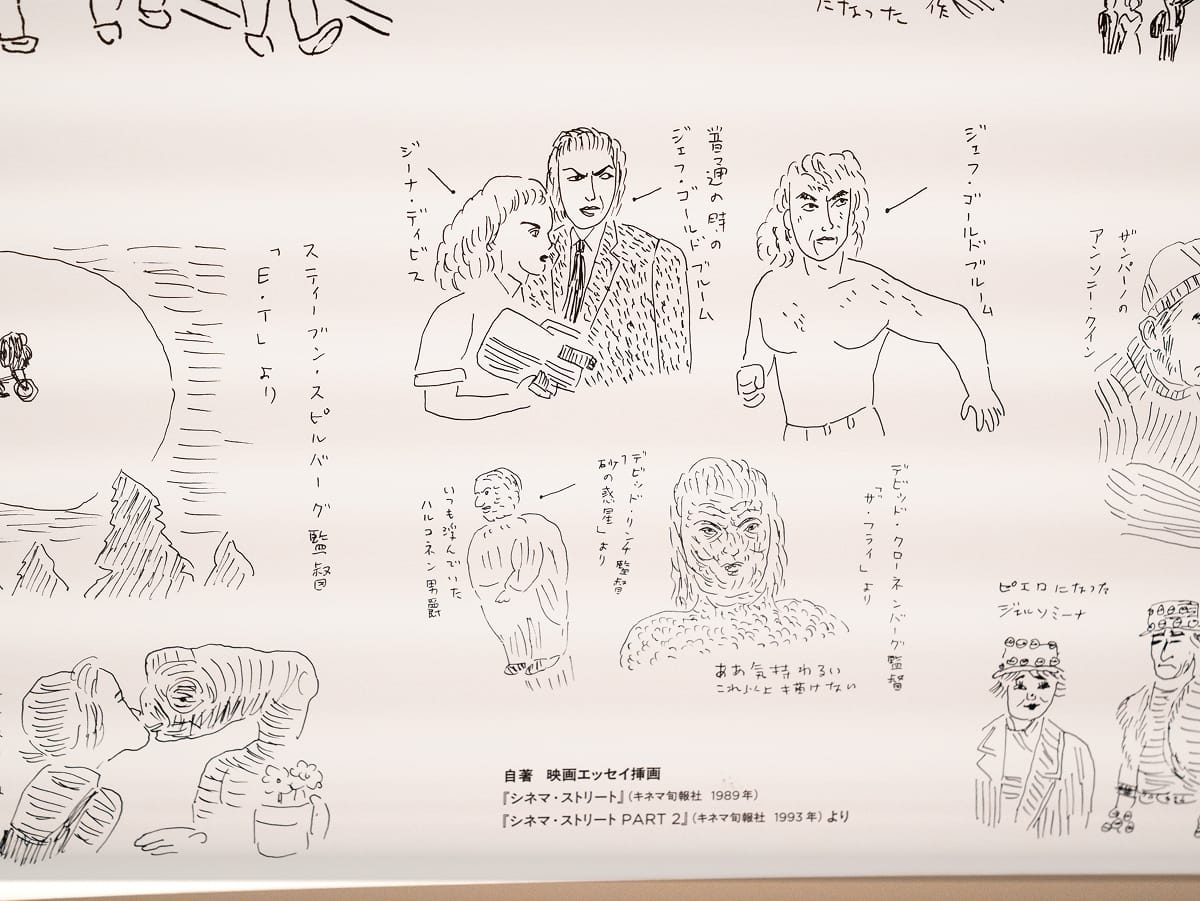 になった 作
ジーナ・デイビス
普通の時の
ジェフ・ゴールドブルーム
ジェフ・ゴールドブルーム
ザンパーノの
アンソニー・クイン
スティーブン・スピルバーグ監督
「E・T」より
デビッド・リンチ監督
「砂の惑星」より
いつも浮んでいた
ハルコネン男爵
デビッド・クローネンバーグ監督
「ザ・フライ」より
ああ気持わるい
これ以上描けない
ピエロになった
ジェルソミーナ
自著 映画エッセイ挿画
『シネマ・ストリート』(キネマ旬報社 1989年)
『シネマ・ストリート PART 2』(キネマ旬報社 1993年)より